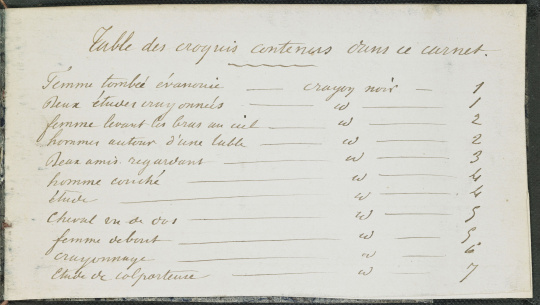 Table des croquis contenus dans ce carnet.
Femme tombée évanouie — crayon noir — 1
Deux études crayonnées — id — 1
femme levant les bras au ciel — id — 2
hommes autour d'une table — id — 2
Deux amis regardant — id — 3
homme couché — id — 4
étude — id — 4
Cheval vu de dos — id — 5
femme debout — id — 5
crayonnage — id — 6
étude de colporteuse — id — 7